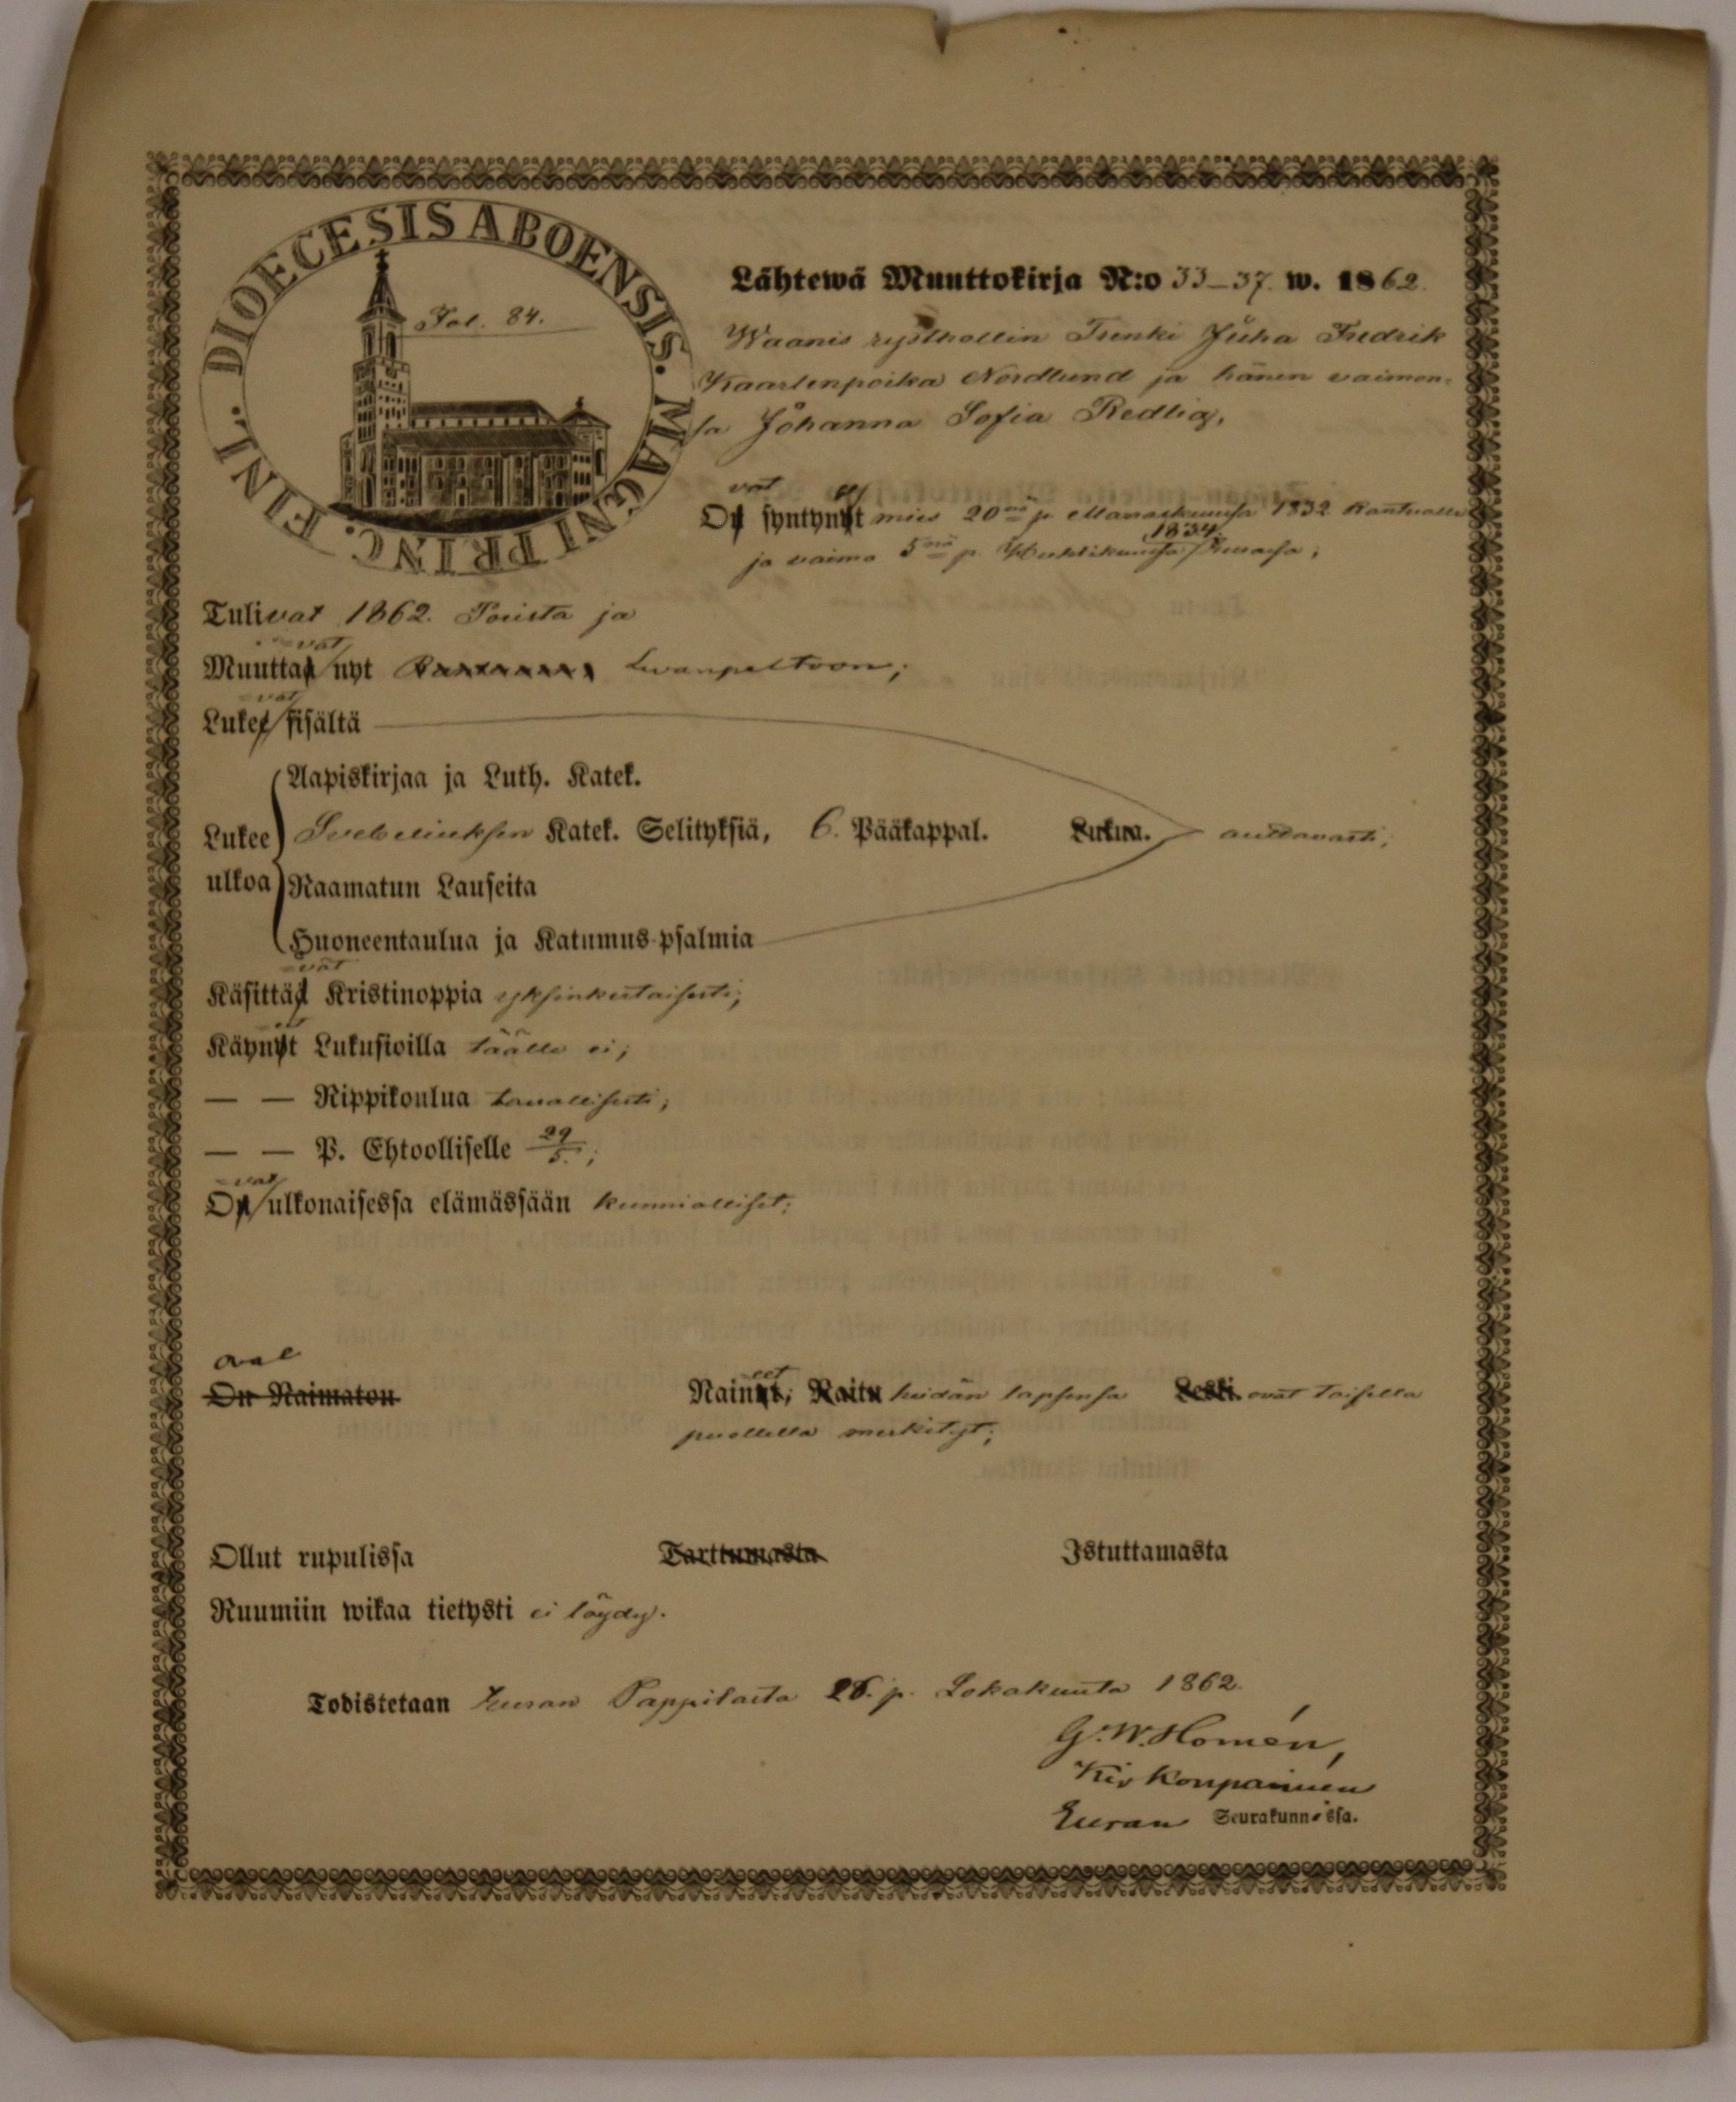 DIOECESIS ABOENSIS. MAGNI PRINC. FINL.
Fol. 84.
Lähtewä Muuttokirja N:o 33–37. w. 1862.
Waanis rysthollin Trenki Juha Fredrik
Kaarlenpoika Nordlund ja hänen vaimon-
sa Johanna Sofia Redlig,
vat
On syntynyt mies 20nä p. Marraskuussa 1832
1834
ja vaimo 5nä p. Huhtikuussa Eurassa;
Tulivat 1862. Porista ja
vat
Muuttaa nyt Luvanpeltoon;
vat
Lukee sisältä
Aapiskirjaa ja Luth. Katek.
Lukee Svebeliuksen Katek. Selityksiä, 6. Pääkappal. Lukua. auttavasti;
ulkoa Raamatun Lauseita
Huoneentaulua ja Katumus-psalmia
vät
Käsittää Kristinoppia yksinkertaisesti;
Käynyt Lukusioilla täällä ei;
— — Rippikoulua tavallisesti;
— — P. Ehtoolliselle 29/5.;
vat
On ulkonaisessa elämässään kunnialliset;
ovat
On Naimaton Nainut; Naitu heidän lapsensa Leski. ovat toisella
puolella merkityt;
Ollut rupulissa Tarttumasta Istuttamasta
Ruumiin wikaa tietysti ei löydy.
Todistetaan Euran Pappilasta 26. p. Lokakuuta 1862.
G. W. Homén,
Kirkonpaimen
Euran Seurakunnassa.